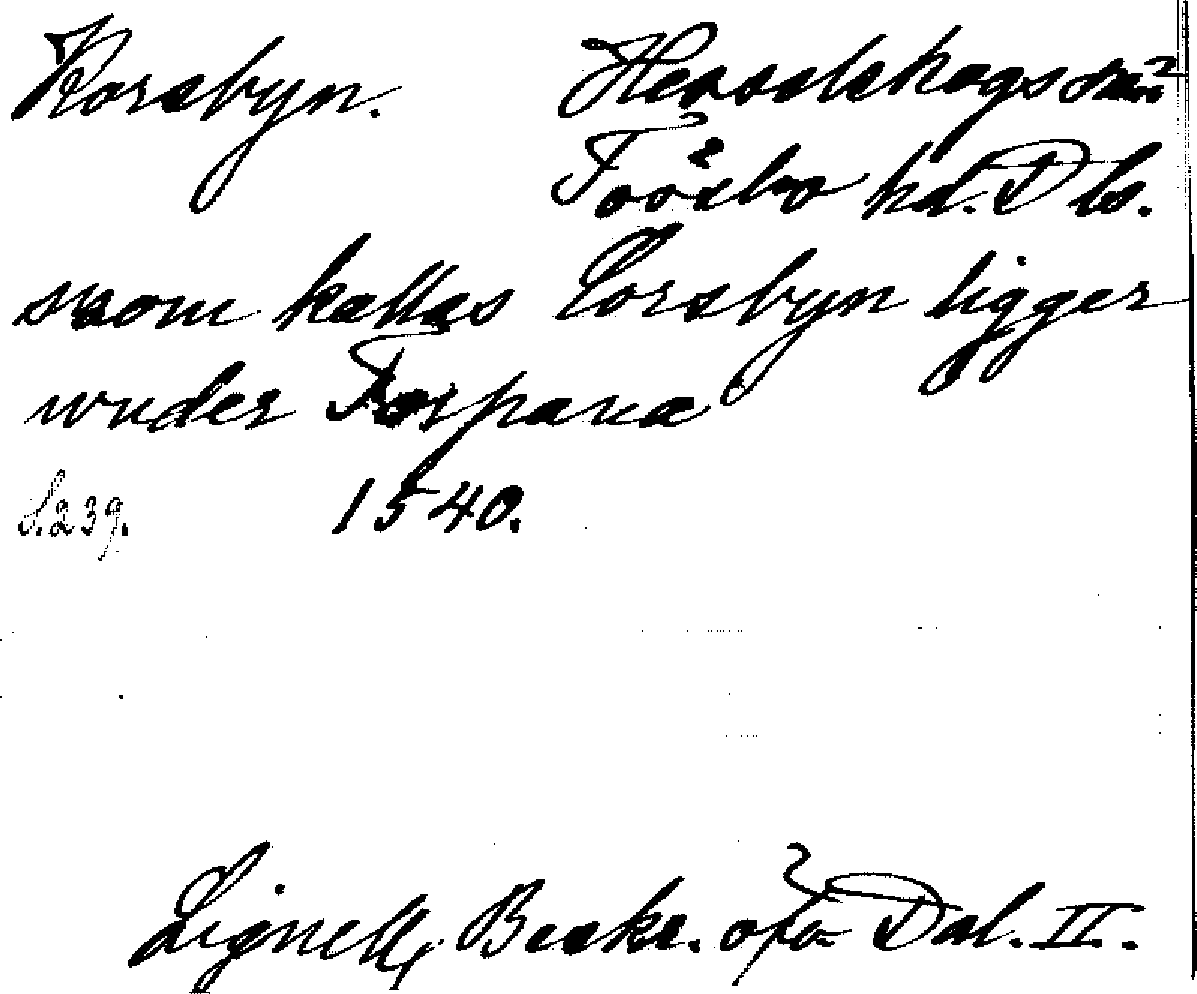 Korsbyn. Hesselskogs sn
Tössbo hd. Dls.
som kallas Corsbyn ligger
wnder Torpana
S. 239. 1540.
Lignell, Beskr. öfv. Dal. II.